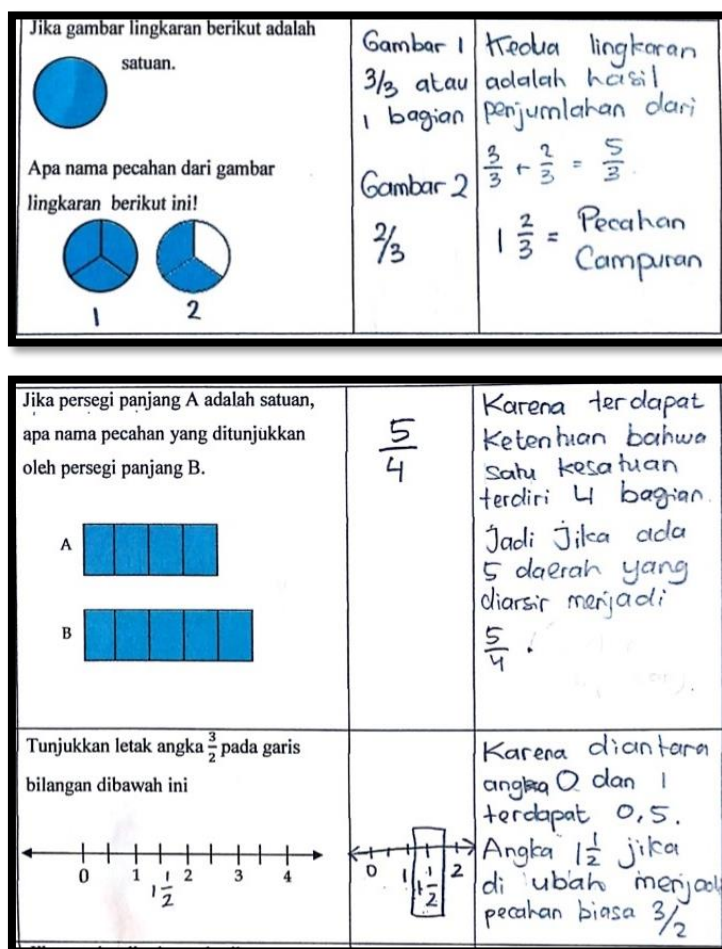 Jika gambar lingkaran berikut adalah
satuan.
Apa nama pecahan dari gambar
lingkaran berikut ini!
1 2
Gambar 1
3/3 atau
1 bagian
Gambar 2
2/3
Kedua lingkaran
adalah hasil
penjumlahan dari
3/3 + 2/3 = 5/3
1 2/3 = Pecahan
Campuran
Jika persegi panjang A adalah satuan,
apa nama pecahan yang ditunjukkan
oleh persegi panjang B.
A
B
5/4
Karena terdapat
Ketentuan bahwa
satu kesatuan
terdiri 4 bagian.
Jadi Jika ada
5 daerah yang
diarsir menjadi
5/4.
Tunjukkan letak angka 3/2 pada garis
bilangan dibawah ini
0 1 1 1/2 2 3 4
0 1 1 1/2 2
Karena diantara
angka 0 dan 1
terdapat 0,5.
Angka 1 1/2 jika
di ubah menjadi
pecahan biasa 3/2